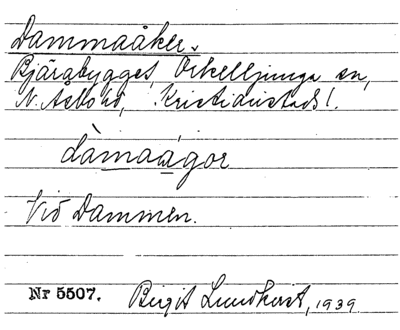 Dammaåker.
Bjärabygget, Örkelljunga sn,
N. Åsbo hd, Kristianstads l.
dàmaágor
Vid Dammen.
Nr 5507. Birgit Lundkvist, 1939.